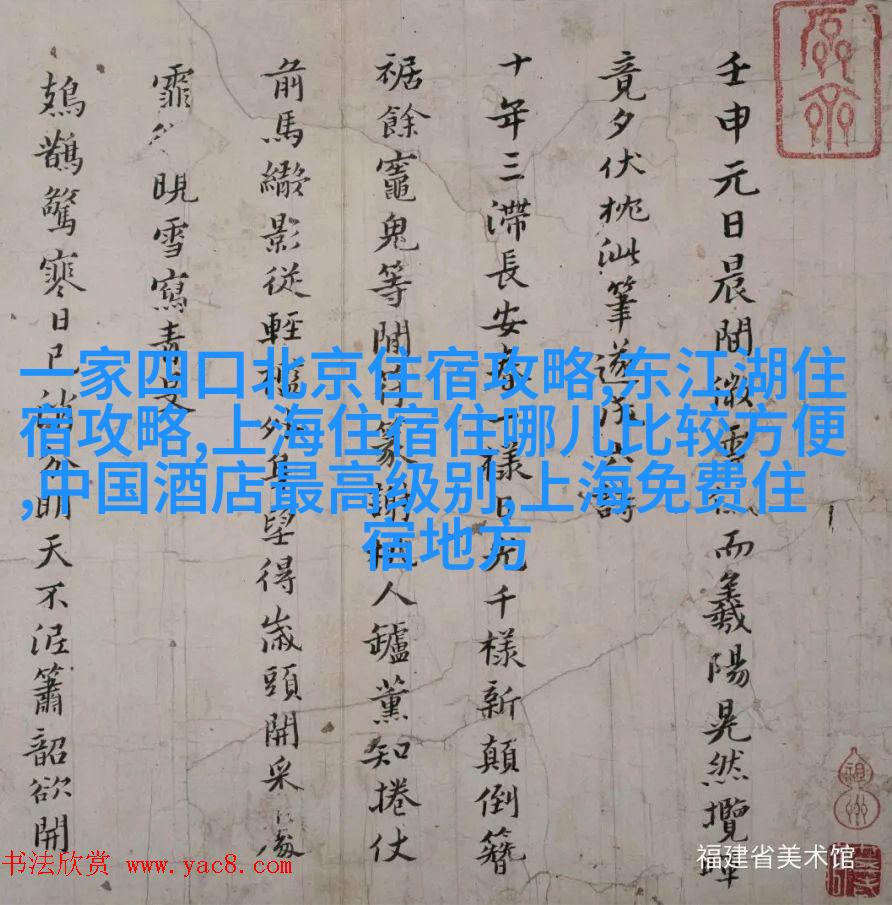 壬申元日晨間微雪 而羲陽晃然攬
竟夕伏枕泚筆遂
十年三滯長安 樣 千樣新顛倒簪
裾餘竈鬼等閒 篆 人鑪薰知捲仗
前馬繳影從輕 望得歲頭開采
霏 晛雪寫青
鳷鵲驚寒日已 分明天不涩簫韶欲開
一家四口北京住宿攻略,东江湖住
宿攻略,上海住宿住哪儿比较方便
,中国酒店最高级别,上海免费住
宿地方
书法欣赏 www.yac8.com
福建省美术馆